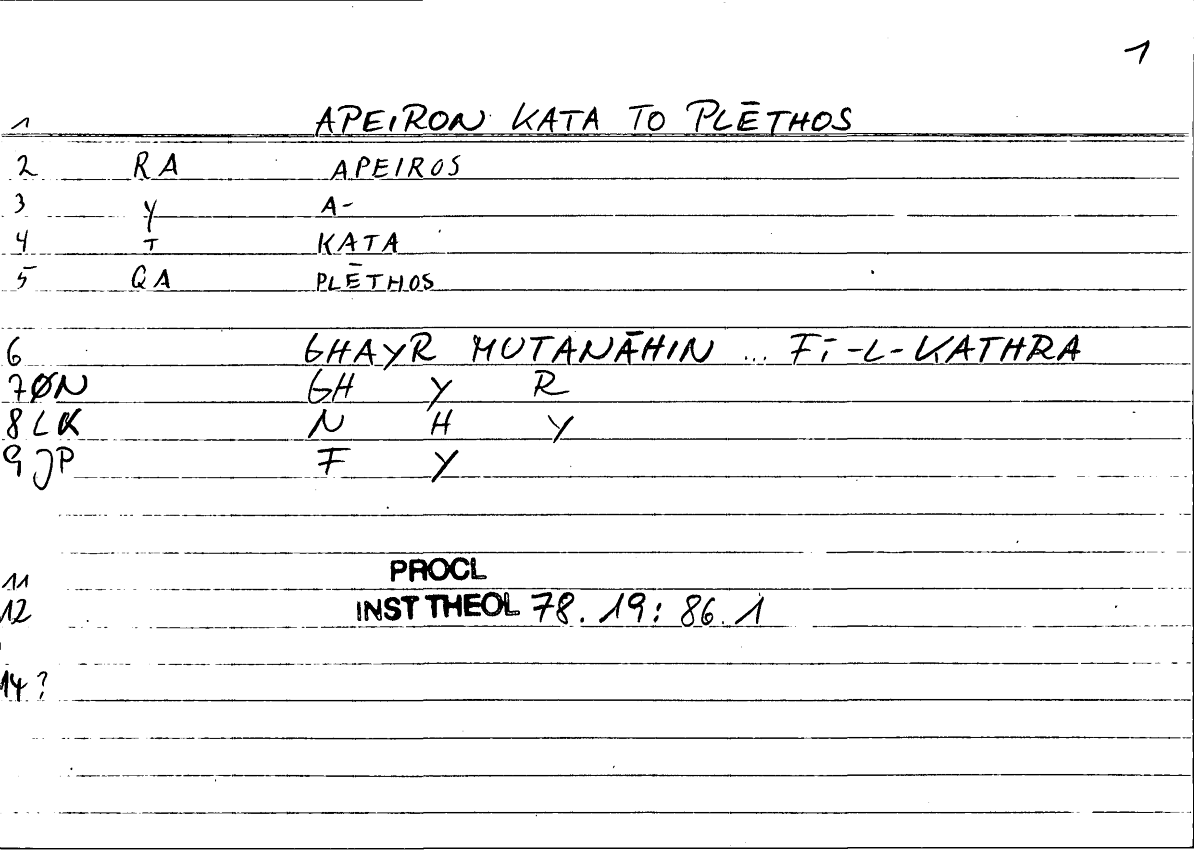 1
1 APEIRON KATA TO PLĒTHOS
2 RA APEIROS
3 Y A-
4 T KATA
5 QA PLĒTHOS
6 GHAYR MUTANĀHIN ... FĪ-L-KATHRA
7ØN GH Y R
8LK N H Y
9JP F Y
11 PROCL
12 INST THEOL 78. 19: 86. 1
14?